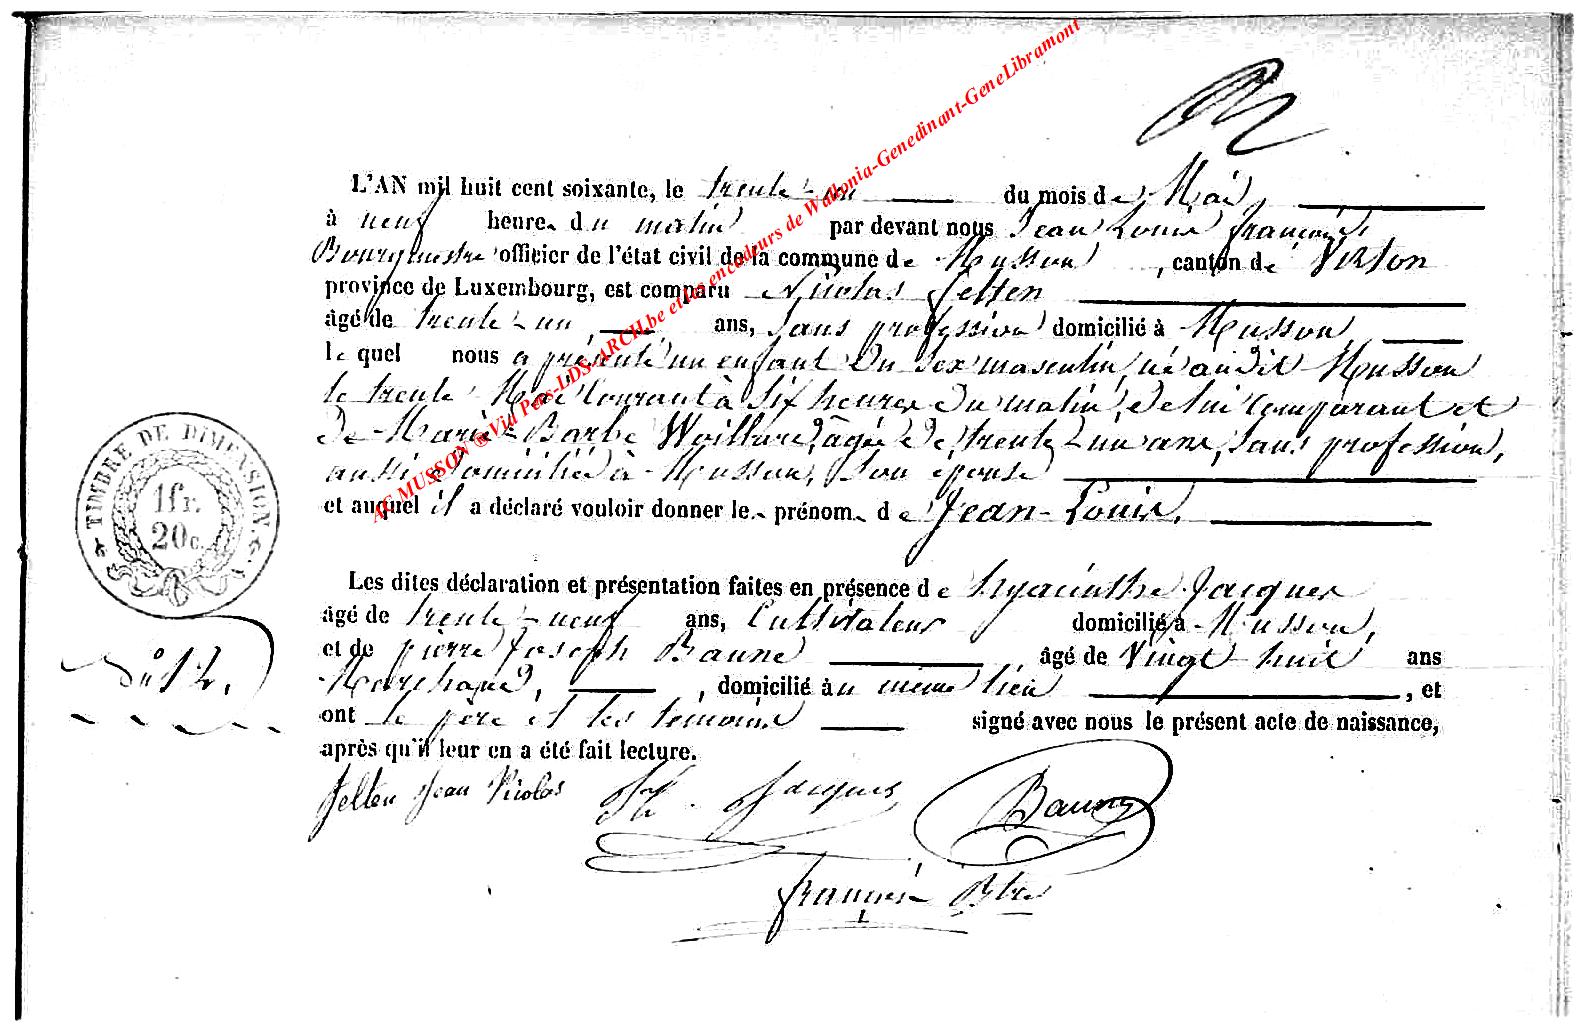 L'AN mil huit cent soixante, le trente-un du mois de Mai,
à neuf heures du matin par devant nous Jean Louis François,
Bourgmestre officier de l'état civil de la commune de Musson, canton de Virton
province de Luxembourg, est comparu Nicolas Felten
âgé de trente-un ans, sans profession domicilié à Musson,
le quel nous a présenté un enfant du sex masculin, né audit Musson
le trente Mai Courant à six heures du matin, de lui Comparant et
de Marie-Barbe Woillard, âgée de trente-un ans, sans profession,
aussi domiciliée à Musson, son épouse
et auquel il a déclaré vouloir donner les prénoms de Jean-Louis.
Les dites déclaration et présentation faites en présence de hyacinthe Jacques
âgé de trente-neuf ans, Cultivateur domicilié à Musson,
et de pierre Joseph Baune âgé de Vingt huit ans
Marchand, , domicilié au même lieu , et
ont le père et les témoins signé avec nous le présent acte de naissance,
après qu'il leur en a été fait lecture.
felten Jean Nicolas Jacques Baune
françois Btre
TIMBRE DE DIMENSION
1fr.
20c.
N° 12.
AC MUSSON ® Vid Pers-LDS-ARCH.be et les encodeurs de Wallonia-Genedinant-GeneLibramont